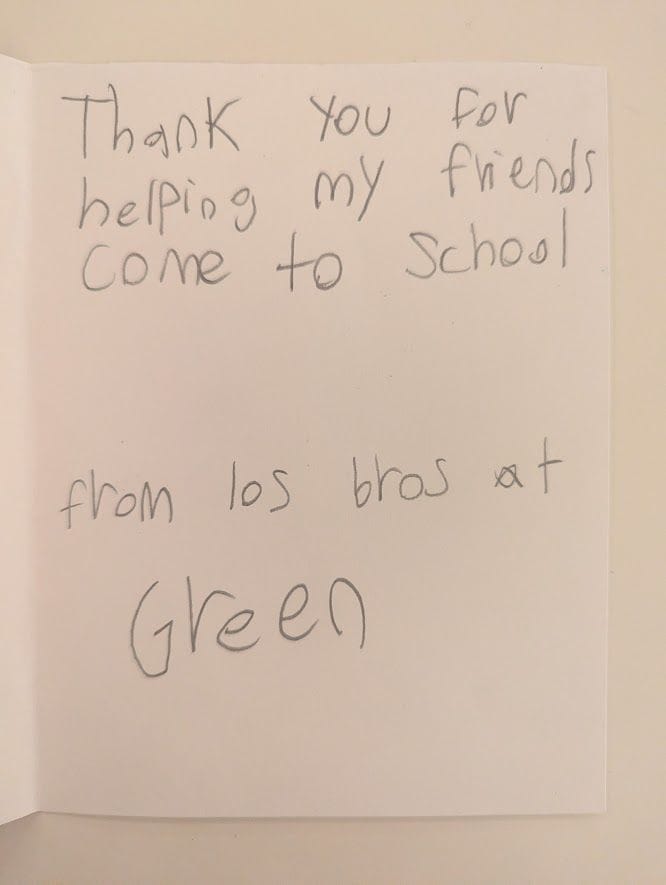 Thank you for
helping my friends
come to school
from los bros at
Green